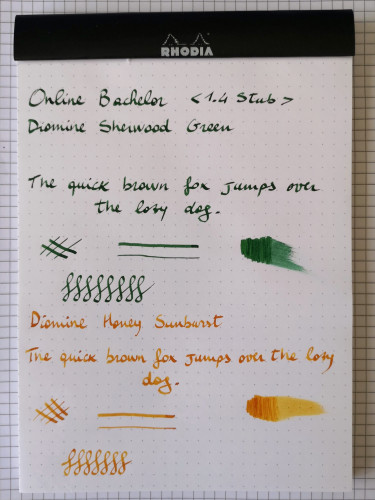 RHODIA
Online Bachelor <1.4 Stub>
Diamine Sherwood Green
The quick brown fox jumps over
the lazy dog.
Diamine Honey Sunburst
The quick brown fox jumps over the lazy
dog.